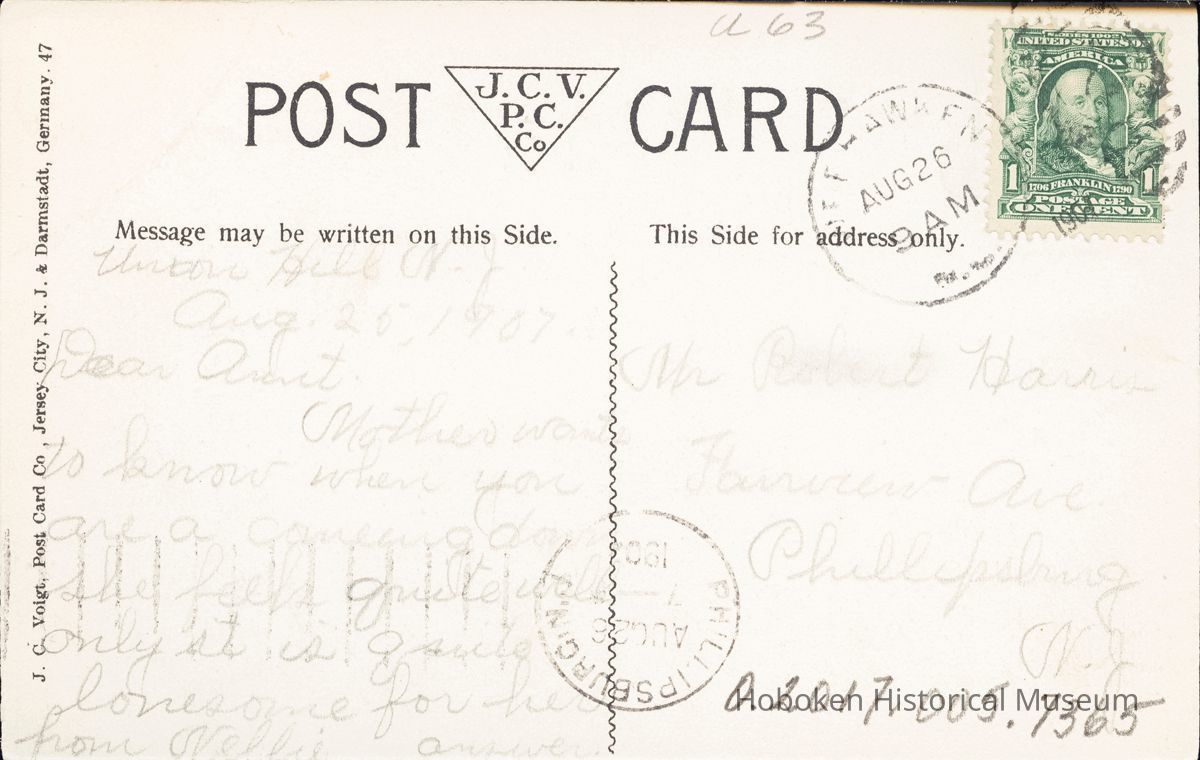 a 63
POST CARD
J. C. V.
P. C.
Co
Message may be written on this Side.
This Side for address only.
J. C. Voigt, Post Card Co., Jersey City, N. J. & Darmstadt, Germany. 47
SERIES 1902
UNITED STATES OF
AMERICA
1706 FRANKLIN 1790
POSTAGE
1 ONE CENT 1
AUG 26
9 AM
Union Hill N. J.
Aug. 25, 1907.
Dear Aunt.
Mother wants
to know when you
are a comeing down
she feels quite well
only it is quite
lonesome for her
from Nellie answer.
Mr Robert Harris
Fairview Ave
Phillipsburg
N. J.
PHILLIPSBURG, N.J.
AUG 26
7
190
Hoboken Historical Museum
A 2017. 005. 7365